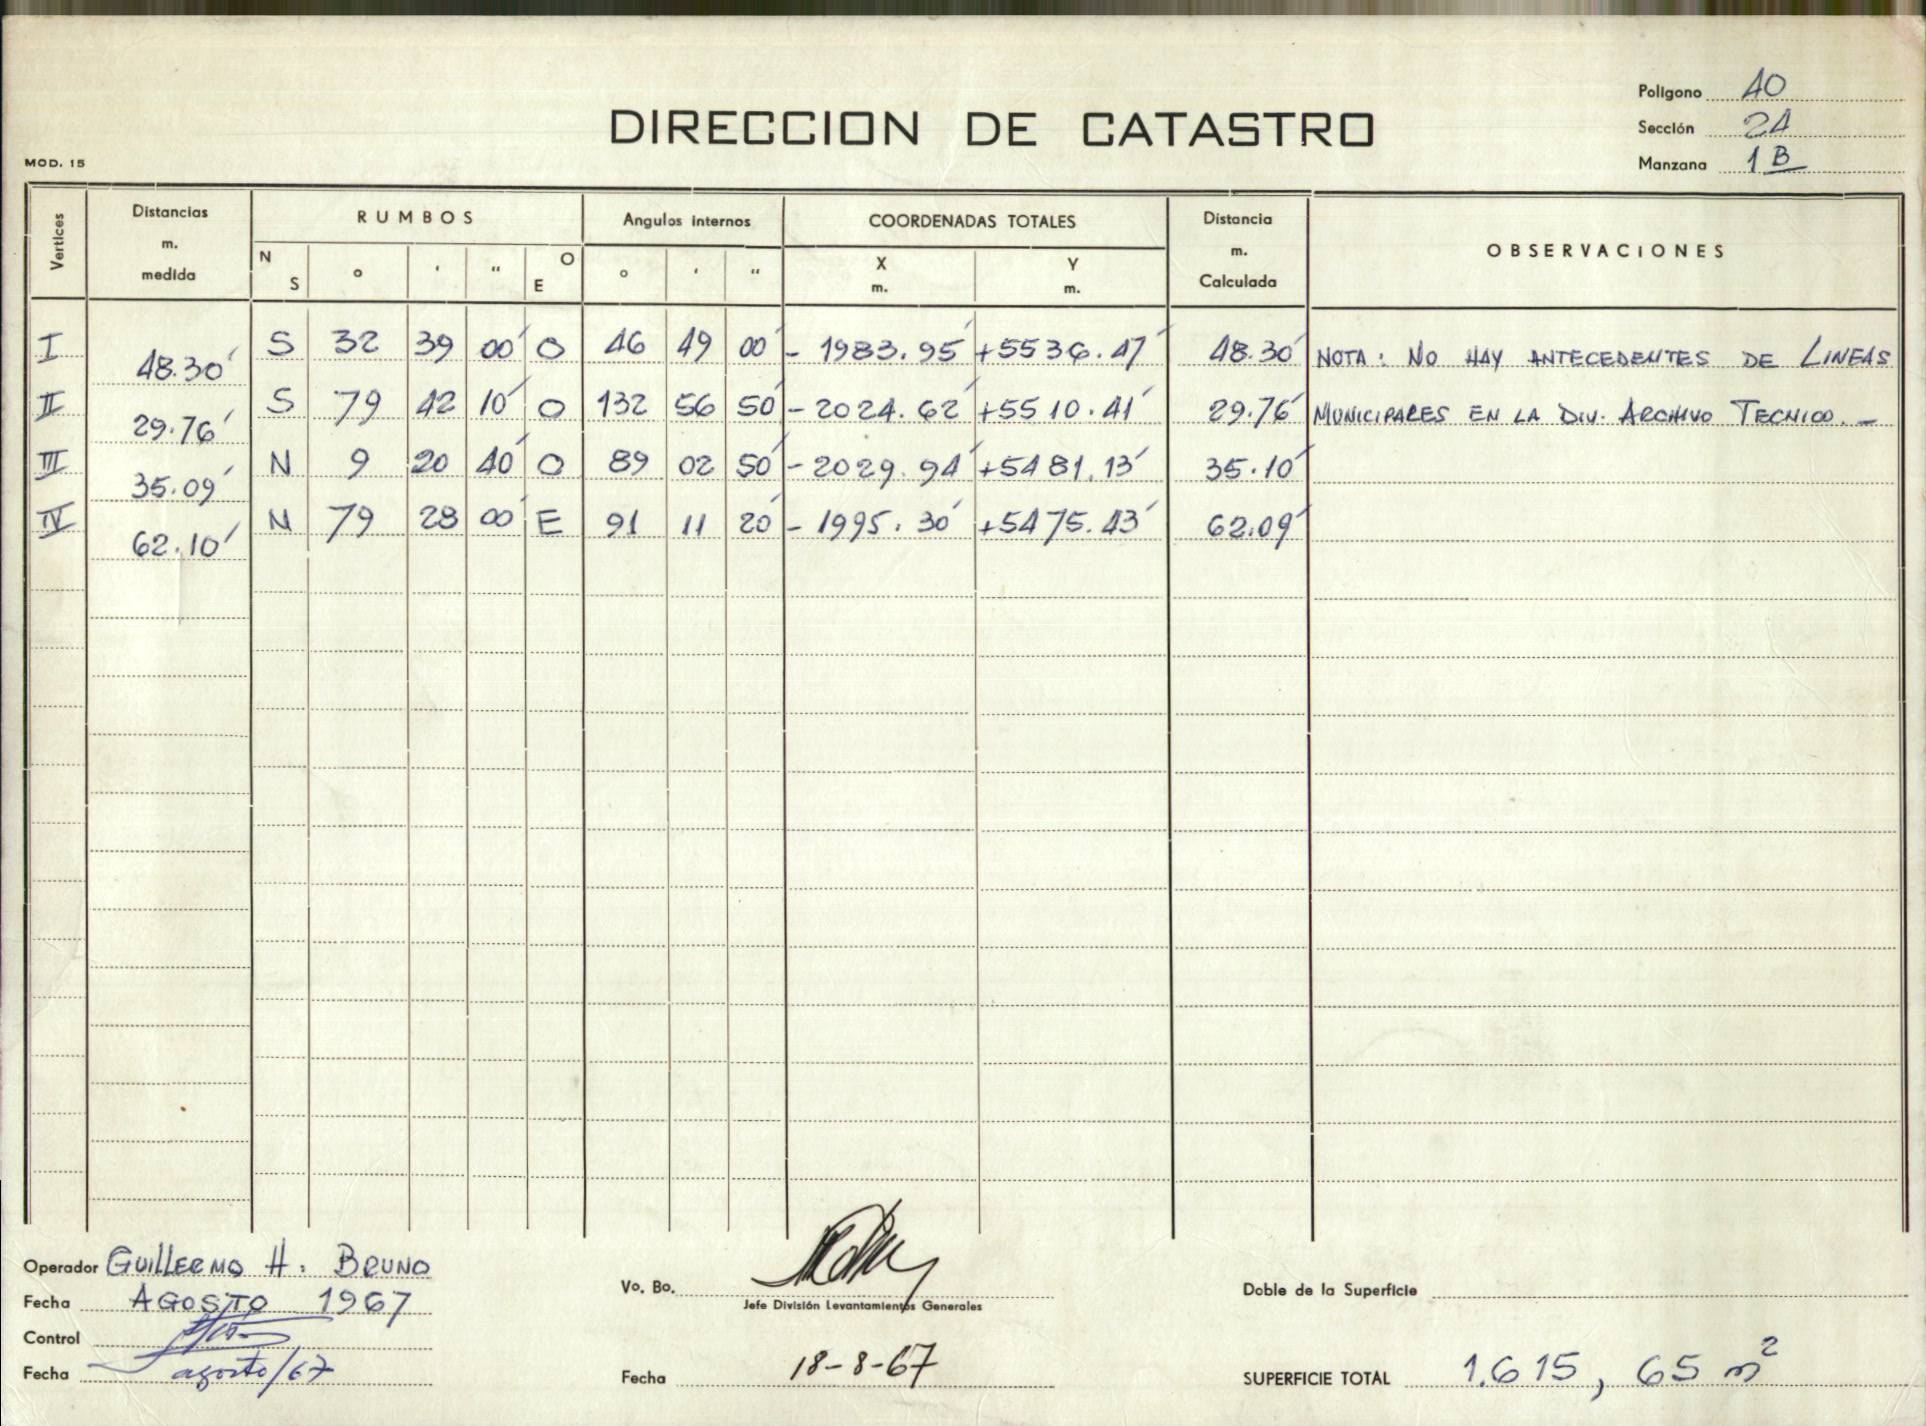 Polígono 40
DIRECCION DE CATASTRO
Sección 24
MOD. 15
Manzana 1 B
Vertices
Distancias m. medida
RUMBOS
Angulos internos
COORDENADAS TOTALES
Distancia m. Calculada
OBSERVACIONES
N S ° ' " O E
° ' "
X m. Y m.
I 48.30 S 32 39 00 O 46 49 00 - 1983.95 +5536.47 48.30 NOTA: NO HAY ANTECEDENTES DE LINEAS
II 29.76 S 79 42 10 O 132 56 50 - 2024.62 +5510.41 29.76 MUNICIPALES EN LA DIV. ARCHIVO TECNICO. -
III 35.09 N 9 20 40 O 89 02 50 - 2029.94 +5481.13 35.10
IV 62.10 N 79 28 00 E 91 11 20 - 1995.30 +5475.43 62.09
Operador GUILLERMO H. BRUNO
Vo. Bo.
Doble de la Superficie
Fecha AGOSTO 1967
Jefe División Levantamientos Generales
Control
Fecha agosto/67
Fecha 18-8-67
SUPERFICIE TOTAL 1.615, 65 m²